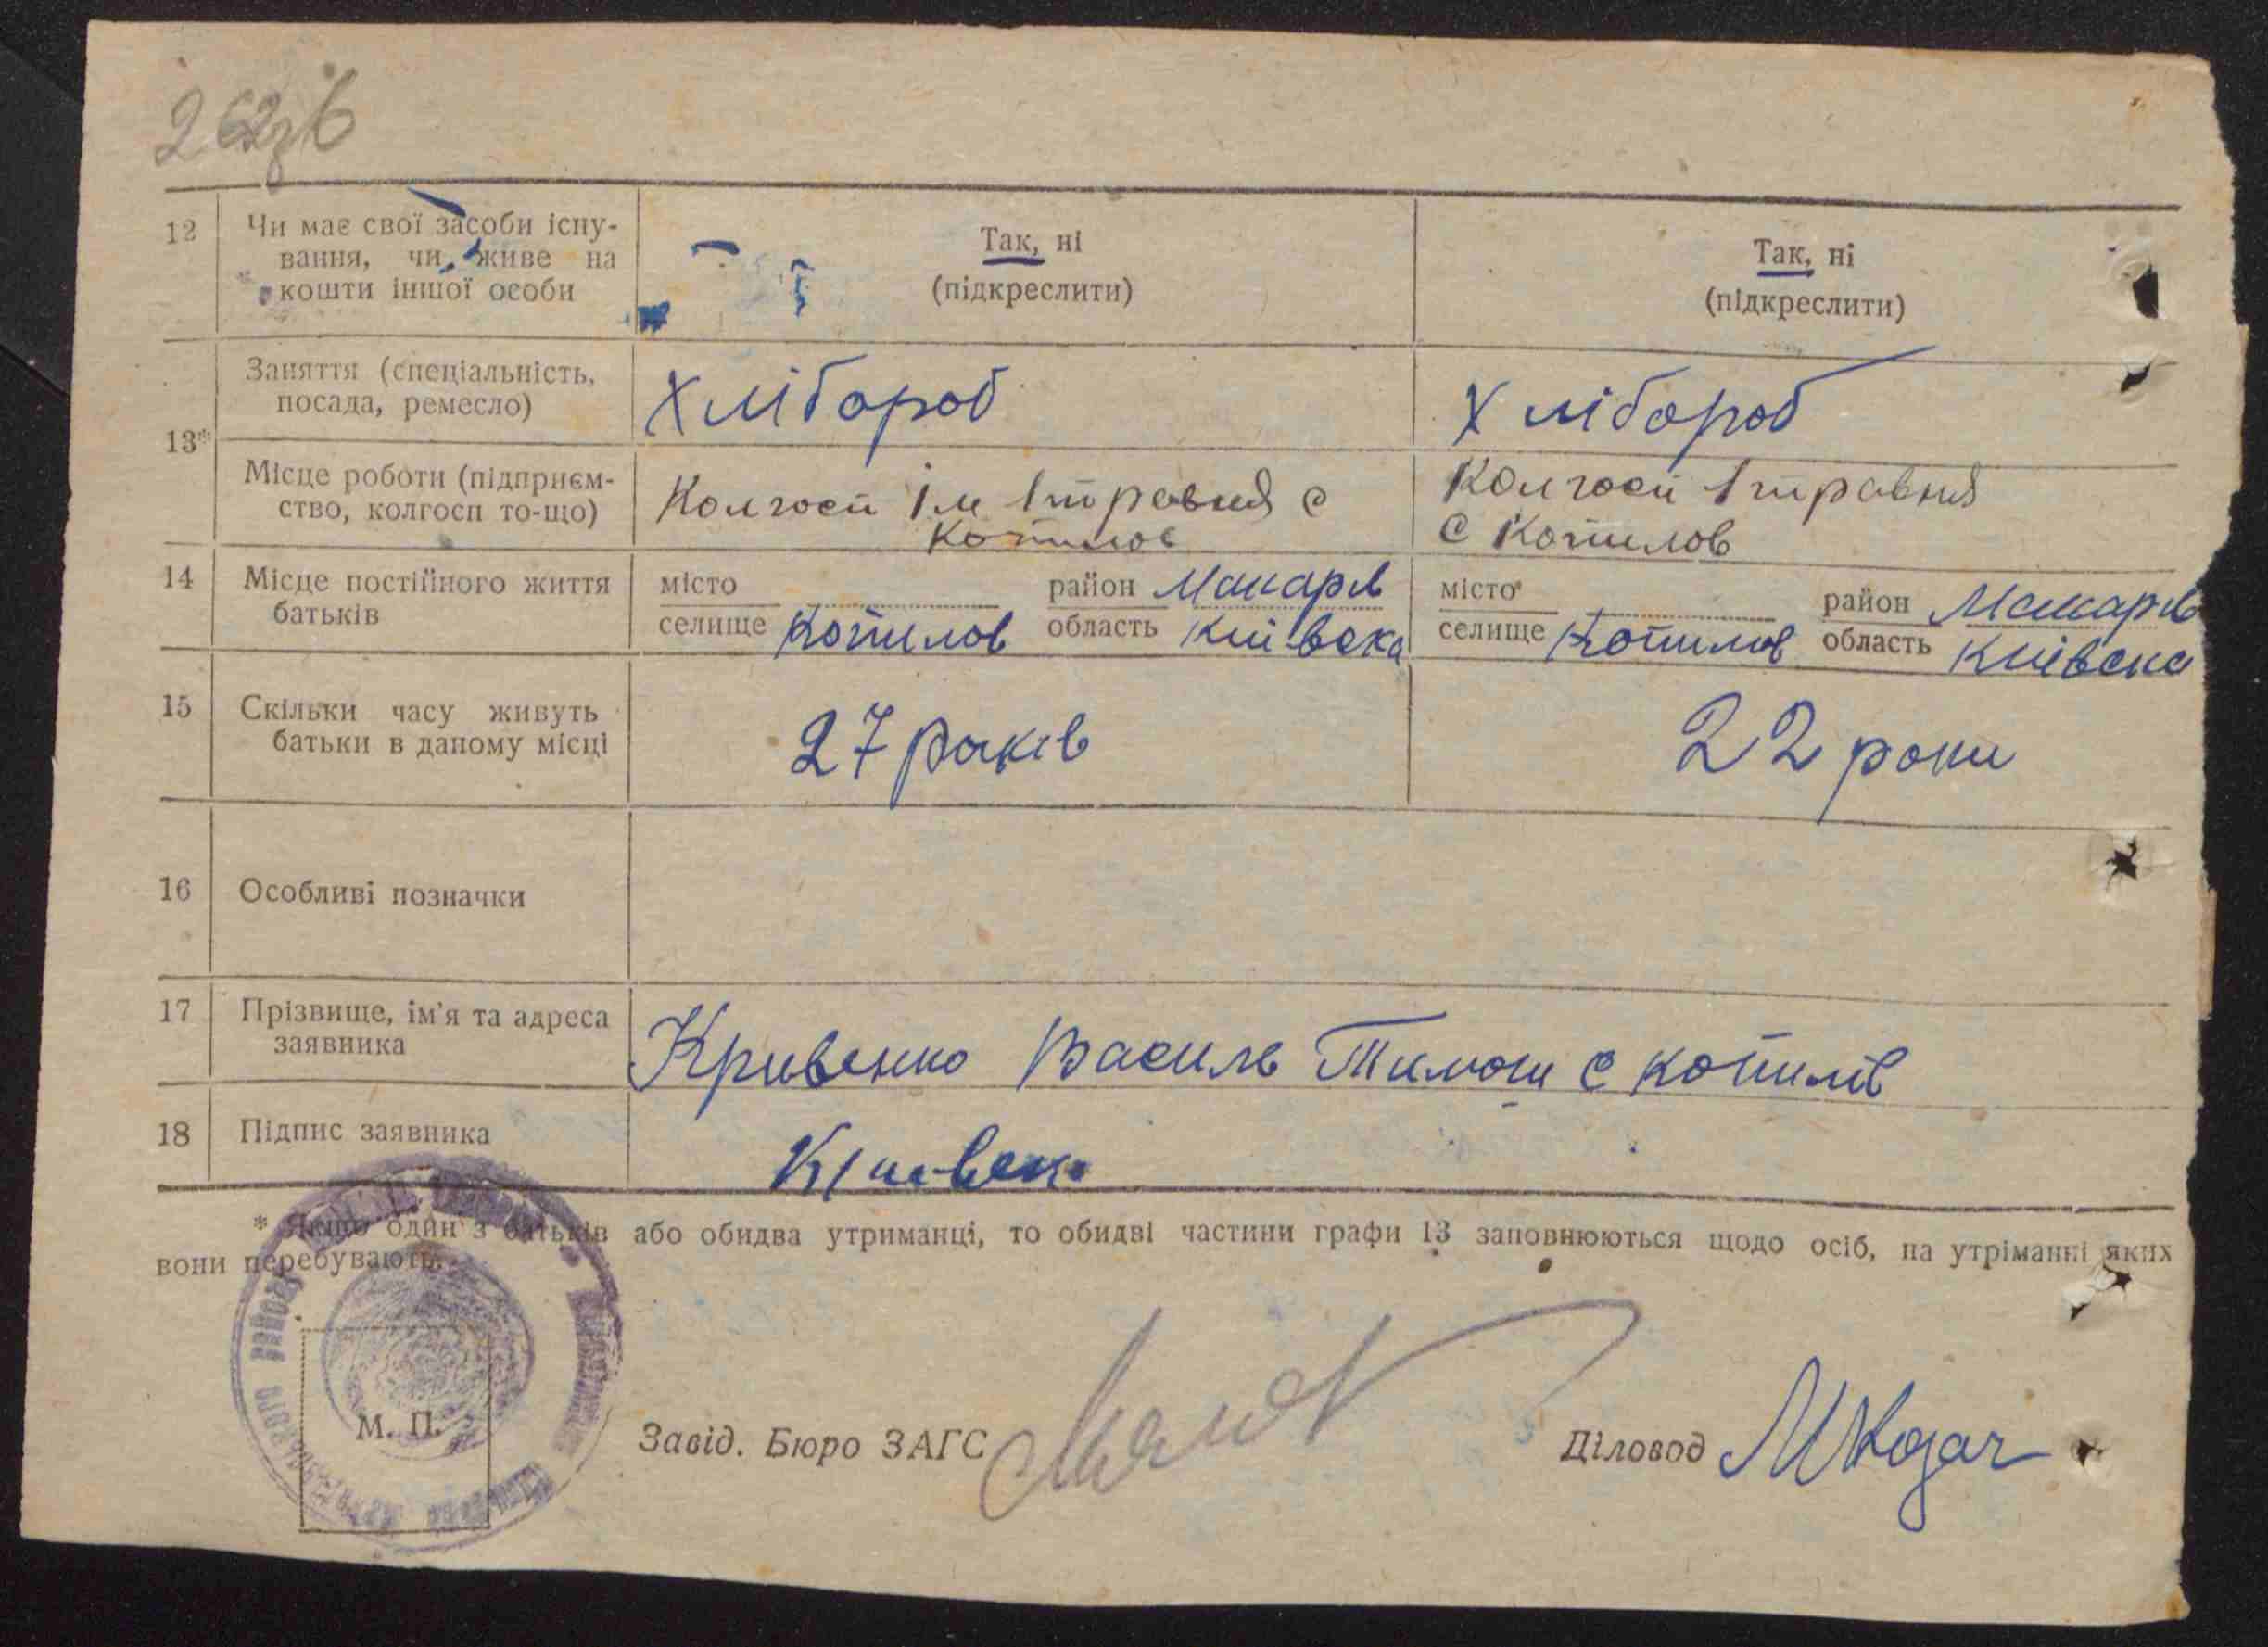 262зв
12 Чи має свої засоби існу-
вання, чи живе на
кошти іншої особи
Так, ні
(підкреслити)
Так, ні
(підкреслити)
13*
Заняття (спеціальність,
посада, ремесло)
Хлібороб
Хлібороб
Місце роботи (підприєм-
ство, колгосп то-що)
Колгосп ім 1 травня с
Копилов
Колгосп 1 травня
с Копилов
14 Місце постійного життя
батьків
місто район Макарів
селище Копилов область Київска
місто район Макарів
селище Копилов область Київска
15 Скільки часу живуть
батьки в даному місці
27 років
22 роки
16 Особливі позначки
17 Прізвище, ім'я та адреса
заявника
Кривенко Василь Тимош с Копилів
18 Підпис заявника
* Якщо один з батьків або обидва утриманці, то обидві частини графи 13 заповнюються щодо осіб, на утріманні яких
вони перебувають.
М. П.
Завід. Бюро ЗАГС
Діловод